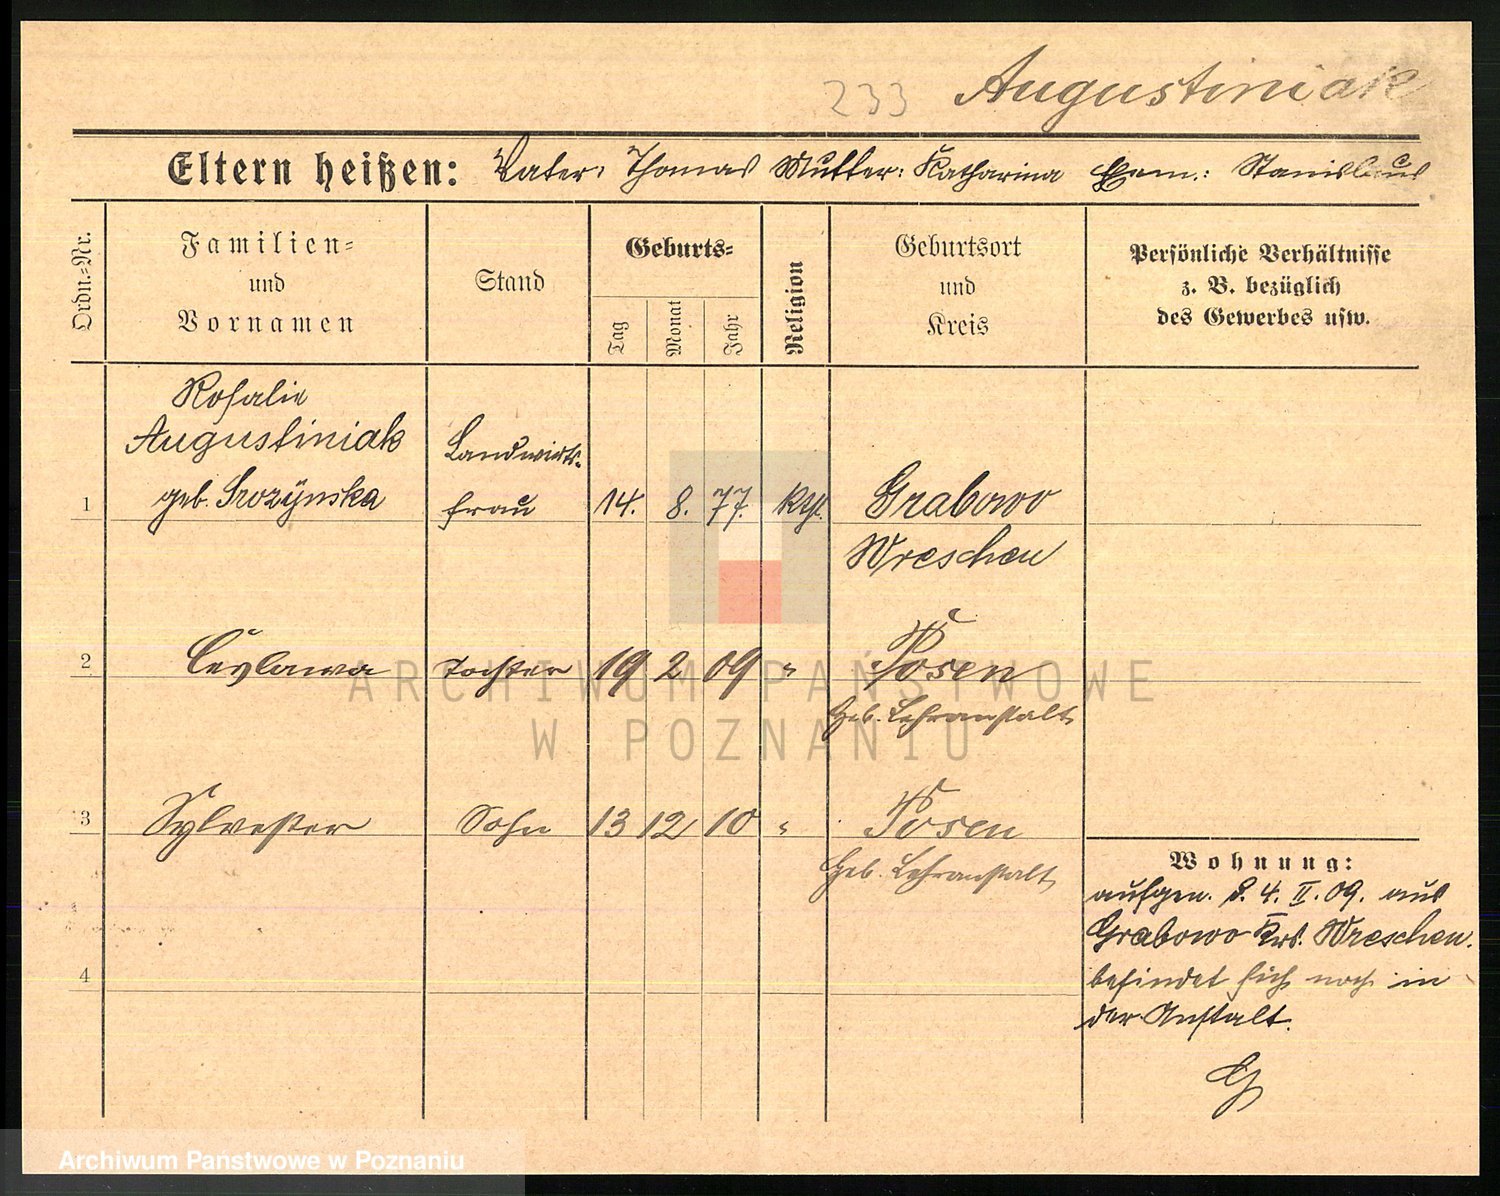 233 Augustiniak
Eltern heißen: Vater: Thomas Mutter: Katharina Ehem.: Stanislaus
Ordn.-Nr.
Familien-
und
Vornamen
Stand
Geburts-
Tag
Monat
Jahr
Religion
Geburtsort
und
Kreis
Persönliche Verhältnisse
z. B. bezüglich
des Gewerbes usw.
Rosalie
Augustiniak
Landwirts-
1 geb. frau 14. 8. 77. kth. Grabowo
Wreschen
2 Ceslawa Tochter 19 2 09 " Posen
Geb. Lehranstalt
3 Sylvester Sohn 13 12 10 " Posen
Geb. Lehranstalt
Wohnung:
aufgen. d. 4. II. 09. aus
Grabowo Krs. Wreschen.
befindet sich noch in
der Anstalt.
4
ARCHIWUM PAŃSTWOWE
W POZNANIU
Archiwum Państwowe w Poznaniu